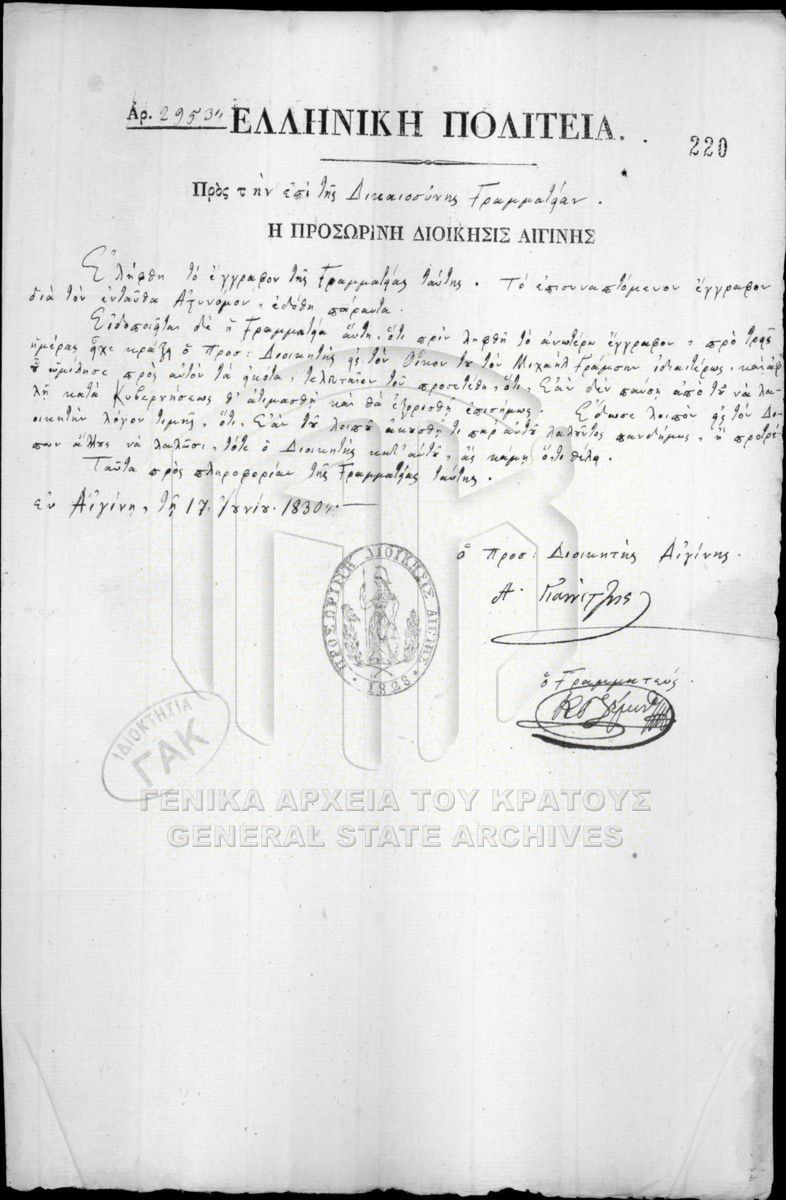 Αρ. 2953,, ΕΛΛΗΝΙΚΗ ΠΟΛΙΤΕΙΑ.
220
Πρὸς τὴν ἐπὶ τῆς Δικαιοσύνης Γραμματείαν.
Η ΠΡΟΣΩΡΙΝΗ ΔΙΟΙΚΗΣΙΣ ΑΙΓΙΝΗΣ
Ἐλήφθη τὸ ἔγγραφον τῆς Γραμματείας ταύτης. Τὸ ἐπισυναπτόμενον ἔγγραφον
διὰ τὸν ἐνταῦθα Ἀστυνόμον, ἐδόθη πάραυτα.
Εἰδοποιεῖται δὲ ἡ Γραμματεία αὕτη, ὅτι πρὶν ληφθῇ τὸ ἀνωτέρω ἔγγραφον, πρὸ τρεῖς
ἡμέρας εἶχε κράξῃ ὁ Προσ: Διοικητὴς εἰς τὸν Οἶκόν του τὸν Μιχαὴλ Γράψαν ἰδιαιτέρως, καὶ
ὡμίλησε πρὸς αὐτὸν τὰ εἰκότα, τελευταῖον τοῦ προσετέθη, ὅτι, Ἐὰν δὲν παύσῃ ἀπὸ τοῦ νὰ λα-
λῇ κατὰ Κυβερνήσεως θ' ἀτιμασθῇ καὶ θὰ ἐξορισθῇ ἐπισήμως. Ἔδωσε λοιπὸν εἰς τὸν Δι-
οικητὴν λόγον τιμῆς, ὅτι, Ἐὰν τοῦ λοιποῦ ἀκουσθῇ τι παρ' αὐτοῦ λαλοῦντος πανδήμως, ἢ προτρέ-
πων ἄλλους νὰ λαλῶσι, τότε ὁ Διοικητὴς κατ' αὐτοῦ, ἂς κάμῃ ὅ,τι θέλει.
Ταῦτα πρὸς πληροφορίαν τῆς Γραμματείας ταύτης.
ἐν Αἰγίνῃ, τῇ 17 Ἰουνίου 1830,,
ὁ Προσ: Διοικητὴς Αἰγίνης.
Α.
ΠΡΟΣΩΡΙΝΗ ΔΙΟΙΚΗΣΙΣ ΑΙΓΙΝΗΣ
1828
ὁ Γραμματεύς.
ΙΔΙΟΚΤΗΣΙΑ
ΓΑΚ
ΓΕΝΙΚΑ ΑΡΧΕΙΑ ΤΟΥ ΚΡΑΤΟΥΣ
GENERAL STATE ARCHIVES